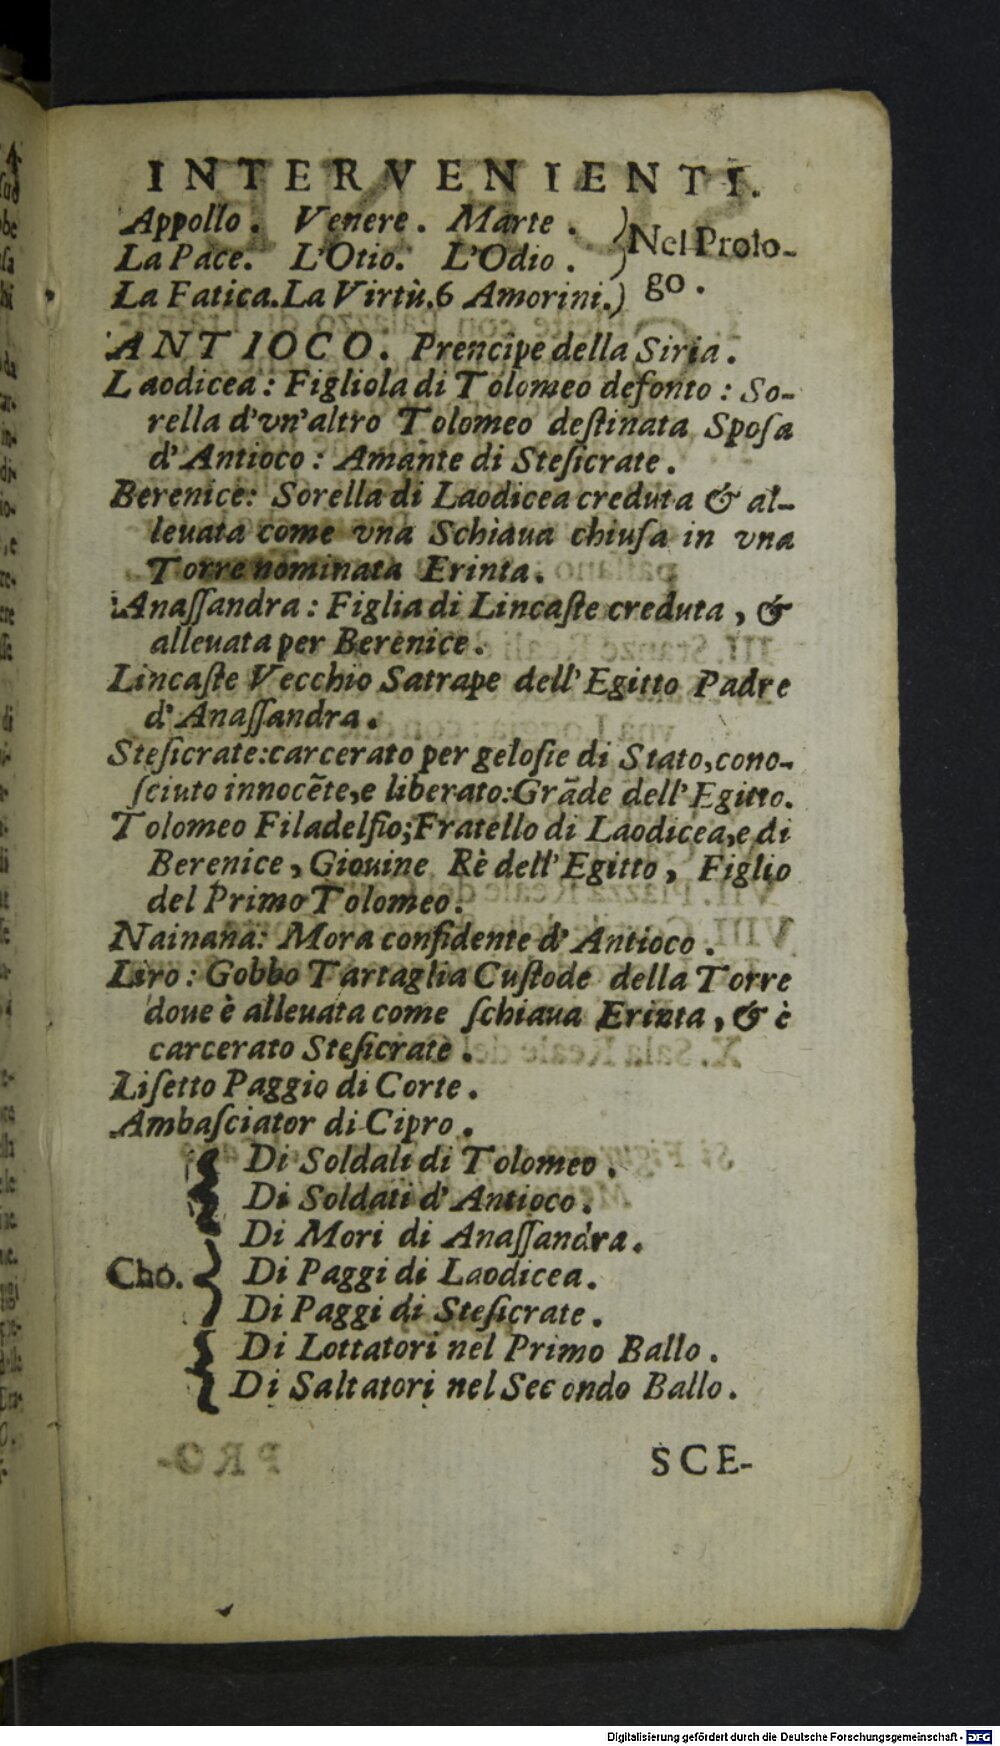 INTERVENIENTI.
Appollo. Venere. Marte. ) Nel Prolo-
La Pace. L'Otio. L'Odio. ) go.
La Fatica. La Virtù. 6 Amorini.)
ANTIOCO. Prencipe della Siria.
Laodicea: Figliola di Tolomeo defonto: So-
rella d'vn'altro Tolomeo deſtinata Spoſa
d'Antioco: Amante di Steſicrate.
Berenice: Sorella di Laodicea creduta & al-
leuata come vna Schiaua chiuſa in vna
Torre nominata Erinta.
Anaſſandra: Figlia di Lincaſte creduta, &
alleuata per Berenice.
Lincaſte Vecchio Satrape dell'Egitto Padre
d'Anaſſandra.
Steſicrate: carcerato per geloſie di Stato, cono-
ſciuto innocẽte, e liberato: Grãde dell'Egitto.
Tolomeo Filadelfio; Fratello di Laodicea, e di
Berenice, Giouine Rè dell'Egitto, Figlio
del Primo Tolomeo.
Nainana: Mora confidente d'Antioco.
Liro: Gobbo Tartaglia Cuſtode della Torre
doue è alleuata come ſchiaua Erinta, & è
carcerato Steſicrate.
Liſetto Paggio di Corte.
Ambaſciator di Cipro.
Di Soldati di Tolomeo.
Di Soldati d'Antioco.
Di Mori di Anaſſandra.
Cho. { Di Paggi di Laodicea.
Di Paggi di Steſicrate.
Di Lottatori nel Primo Ballo.
Di Saltatori nel Secondo Ballo.
SCE-
Digitalisierung gefördert durch die Deutsche Forschungsgemeinschaft - DFG